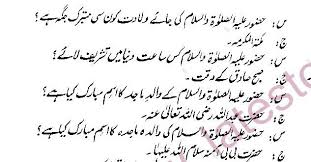 س: حضور علیہ الصلوٰۃ والسلام کی جائے ولادت کون سی متبرک جگہ ہے؟
ج: مکۃ المکرمہ۔
س: حضور علیہ الصلوٰۃ والسلام کس ساعت دنیا میں تشریف لائے؟
ج: صبح صادق کے وقت۔
س: حضور علیہ الصلوٰۃ والسلام کے والد ماجد کا اسم مبارک کیا ہے؟
ج: حضرت عبداللہ رضی اللہ تعالیٰ عنہ۔
س: حضور علیہ الصلوٰۃ والسلام کی والدہ ماجدہ کا اسم مبارک کیا ہے؟
ج: حضرت بی بی آمنہ سلام اللہ علیہا۔
latest